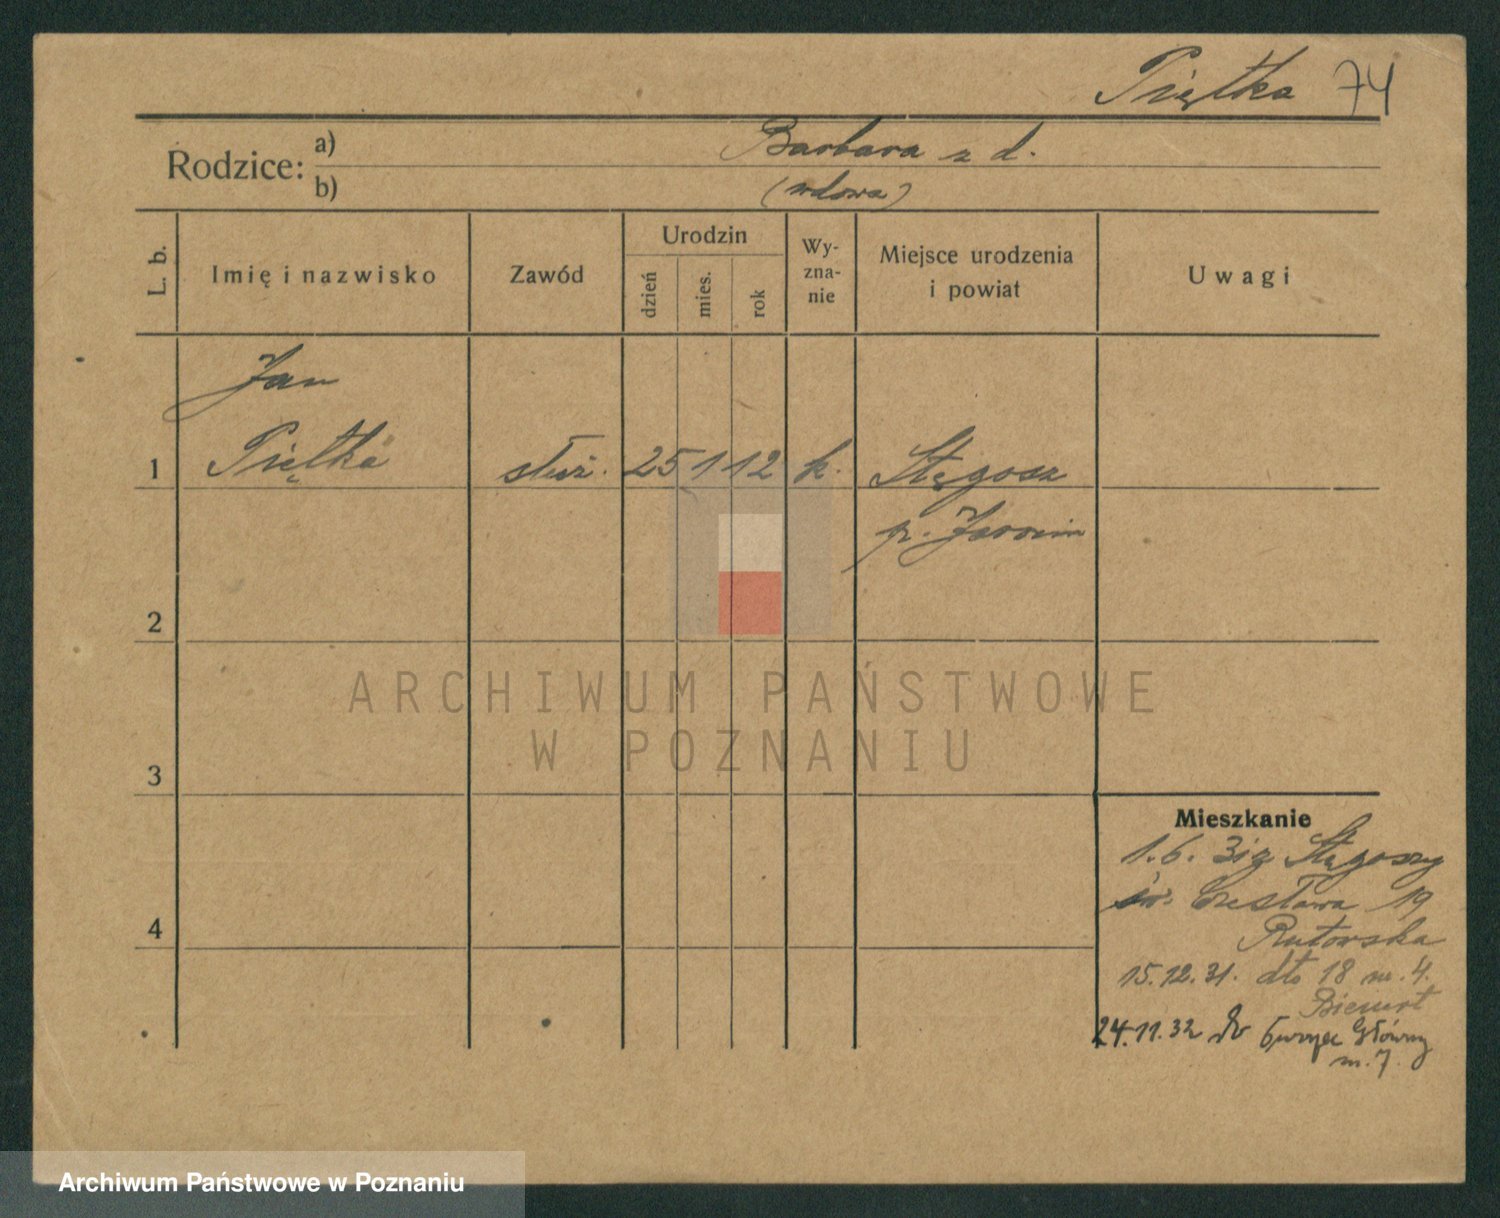 Piętka 74
Rodzice: a) Barbara z d.
b) (wdowa)
L. b. Imię i nazwisko Zawód Urodzin dzień mies. rok Wy-zna-nie Miejsce urodzenia i powiat Uwagi
Jan
1 Piętka służ. 25 1 12 k. Stęgosz
p. Jarocin
2
ARCHIWUM PAŃSTWOWE
W POZNANIU
3
Mieszkanie
1.6. 31 z Stęgoszy
św. Czesława 19
4
Rutowska
15.12.31. dto 18 m. 4.
Bienert
24.11.32 Dworzec Główny
m. 7.
Archiwum Państwowe w Poznaniu